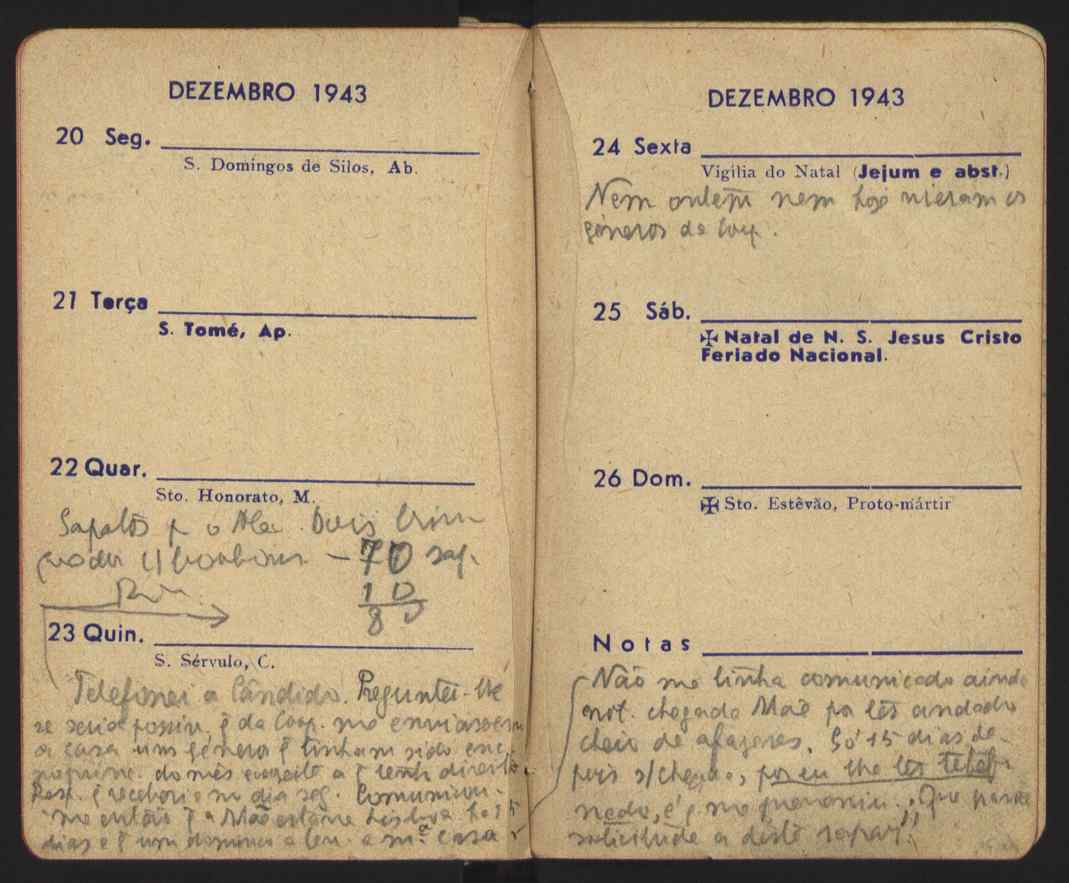 DEZEMBRO 1943
20 Seg.
S. Domingos de Silos, Ab.
21 Terça
S. Tomé, Ap.
22 Quar.
Sto. Honorato, M.
Sapatos p o Alex. Dois
bombons — 70
10
80
23 Quin.
S. Sérvulo, C.
Telefonei a Cândido. Preguntei-lhe
se seria possív. q da Coop. me enviassem
a casa uns géneros q tinham sido
do mês e azeite a q tenho direito
Resp. q receberia no dia seg. Comunicou-
me então q a Mãe estava Lisboa há 15
dias e q um domingo a lev. a mª casa
DEZEMBRO 1943
24 Sexta
Vigília do Natal (Jejum e abst.)
Nem ontem nem hoje vieram os
géneros da Coop.
25 Sáb.
✠ Natal de N. S. Jesus Cristo
Feriado Nacional.
26 Dom.
✠ Sto. Estêvão, Proto-mártir
Notas
Não me tinha comunicado ainda
not. chegada Mãe por ter andado
cheio de afazeres. Só 15 dias de-
pois s/ chegada, por eu lhe ter telefo
nado, é q me preveniu. Que
solicitude a deste rapaz!